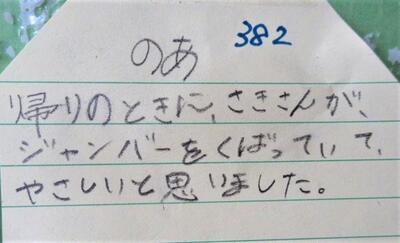 382
のあ
帰りのときに、さきさんが、
ジャンバーをくばっていて、
やさしいと思いました。